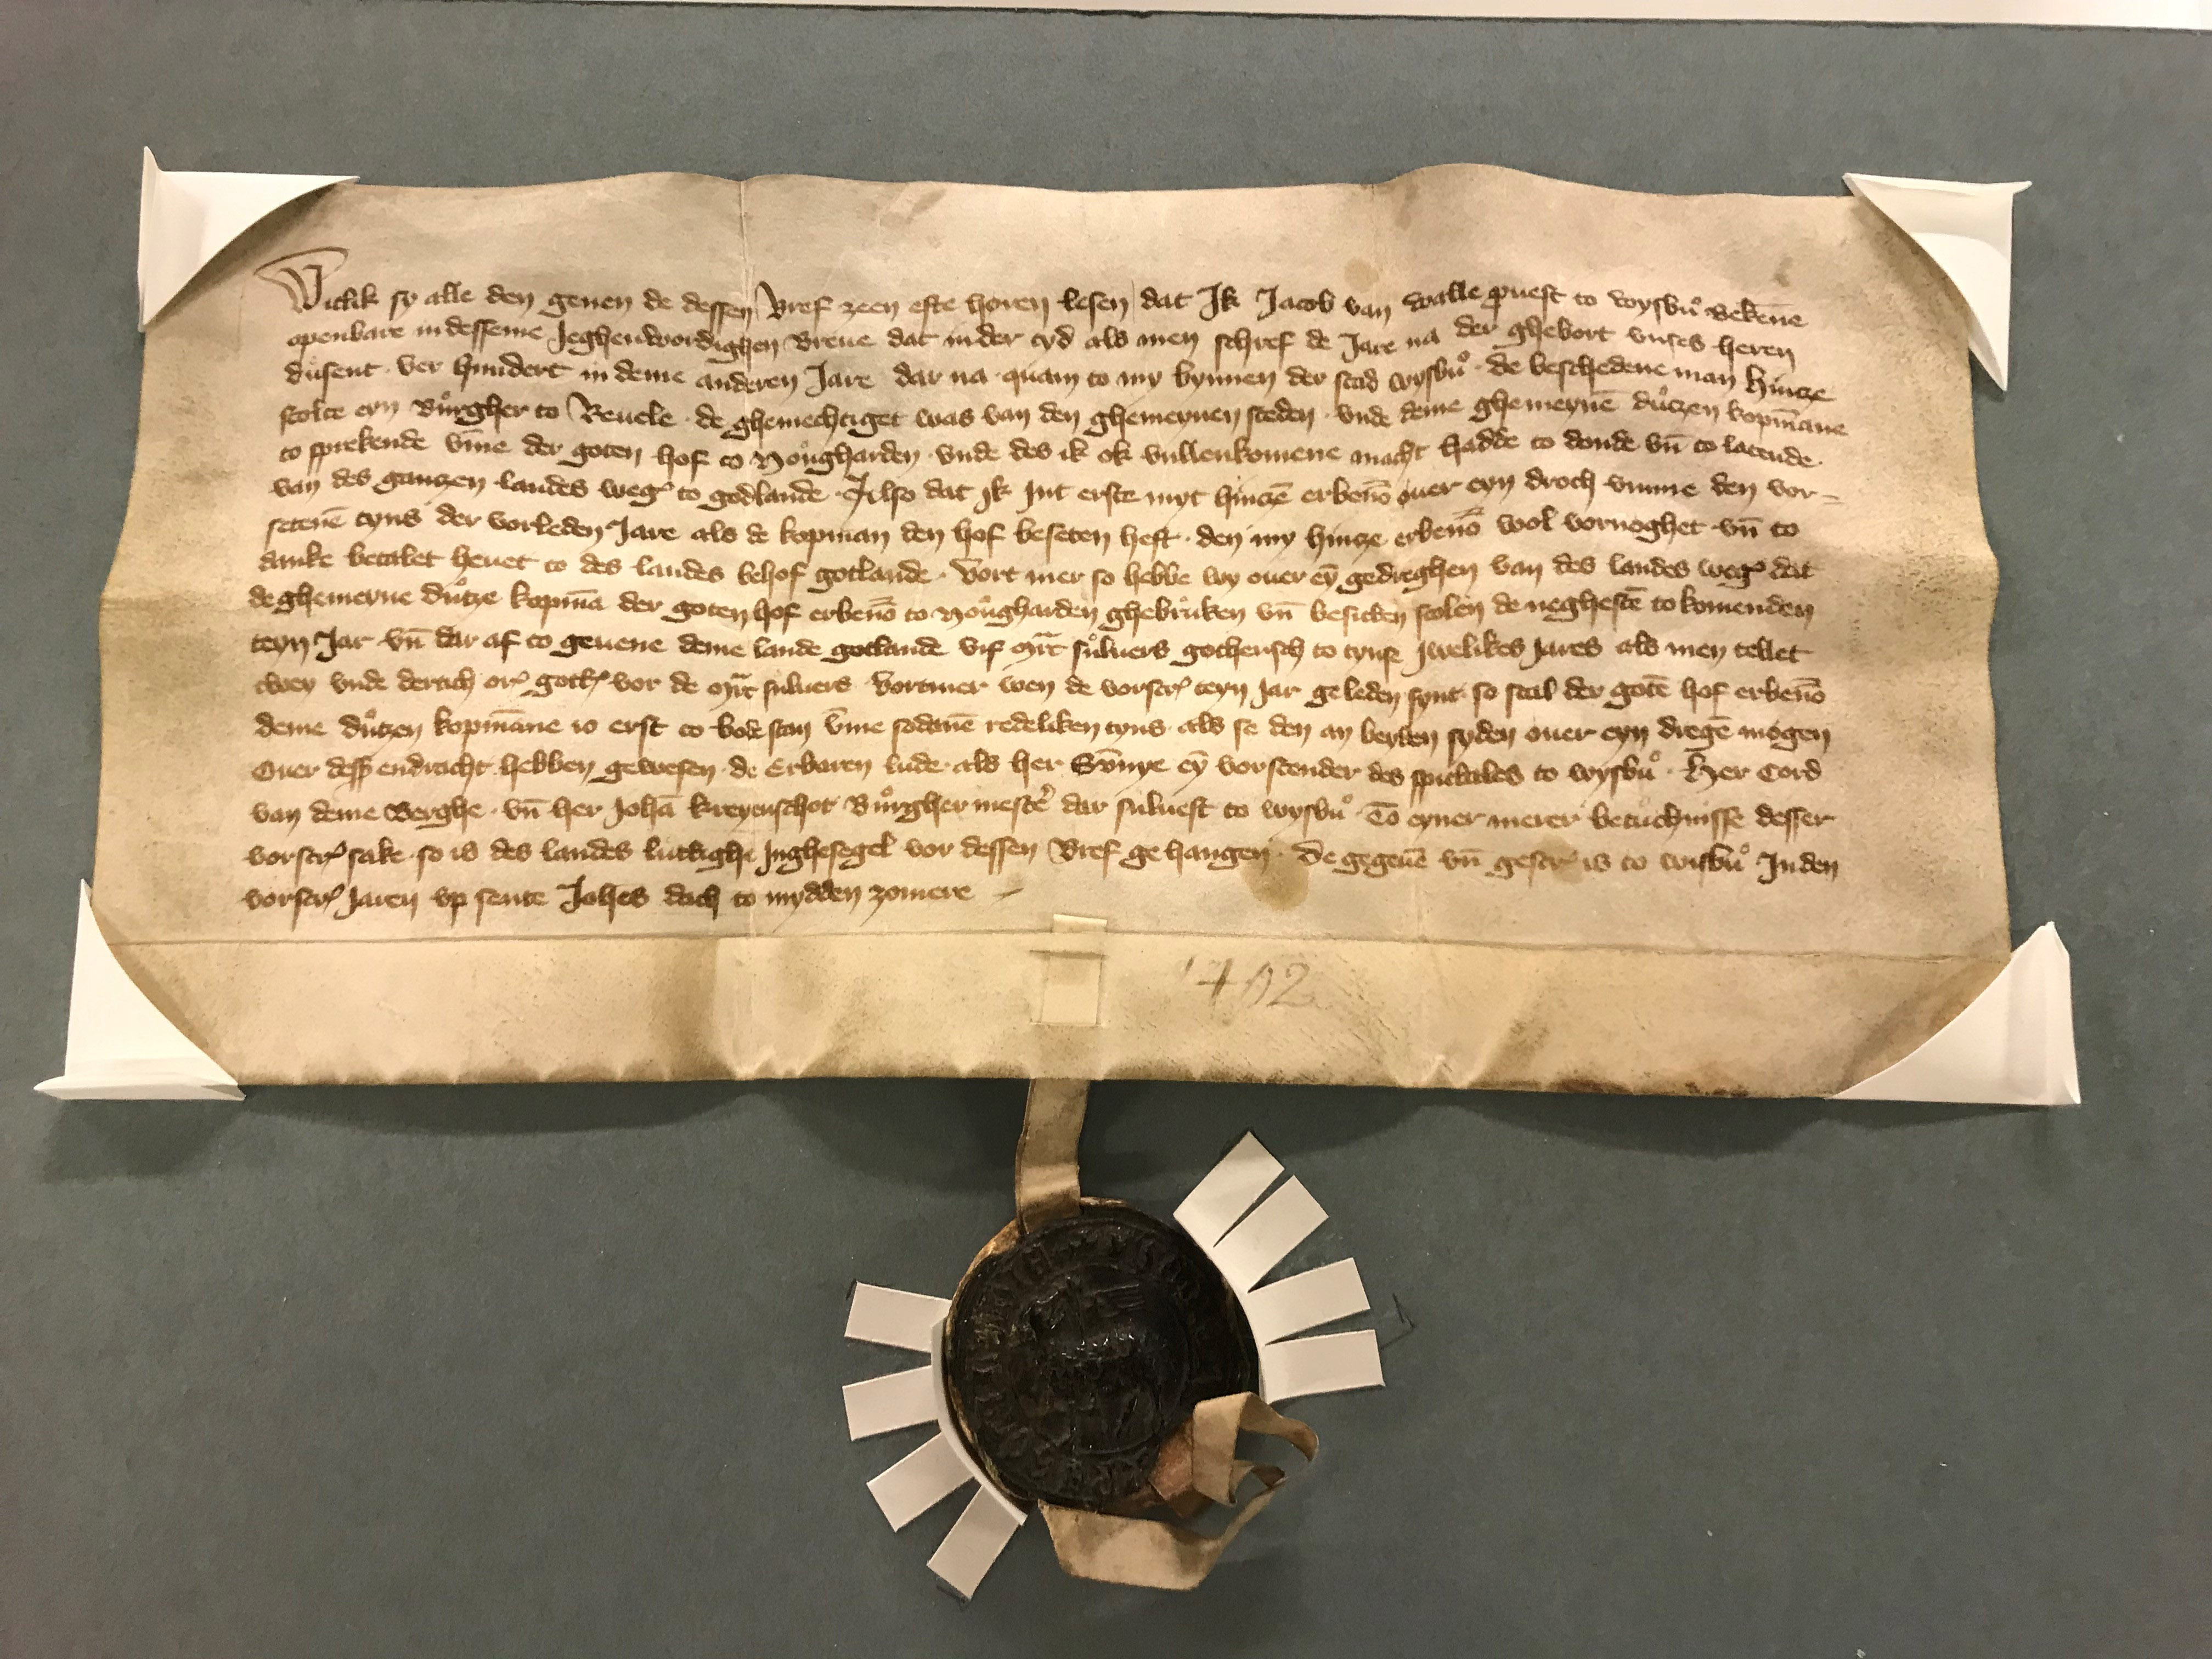 Witlik sy alle den genen de dessen Bref zeen efte horen lesen dat Ik Jacob van walle prouest to wysbuͦ Bekēne
openbare in desseme Jeghenwordighen Breue dat in der tyd als men schref de Jare na der ghebort vnses heren
dusent · ver hundert in deme anderen Jare dar na · quam to my bynnen der stad wysbuͦ · de beschedene man hintze
stolte eyn Buͦrgher to Reuele · de ghemechtiget was van den ghemeynen steden · vnde deme ghemeynē duͦtzen kopmāne
to sprekende vm̄e der goten hof to Nouͦgharden vnde des ik ok vullenkomene macht hadde to donde vn̄ to latende ·
van des gantzen landes weg to godlande · Also dat Ik Int erste myt hintzē erben̄o ouer eyn droch vmme den vor-
setenē tyns der vorleden Jare als de kopman den hof beseten heft · den my hintze erben̄o wol vornoghet vn̄ to
danke betalet heuet to des landes behof gotlande · Vort mer so hebbe wy ouer eȳ gedreghen van des landes weg dat
de ghemeyne duͦtze kopmā der goten hof erben̄o to Nouͦgharden ghebruͦken vn̄ besitten scolen de neghestē to komenden
teyn Jar vn̄ dar af to geuene deme lande gotlande vif mr̄c suͦluers gothensch to tynse Jwelikes Jares als men tellet
twey vnde dertich or gotl vor de mr̄c suluers Vortmer wen de vorscr teyn Jar geleden synt so scal der gotē hof erben̄o
deme duͦtzen kopmāne io erst to bode stan vm̄e sodanē redeliken tyns als se den an beyden syden ouer eyn dregē mogen
Ouer dess endracht hebben gewesen de Erbaren lude als her Son̄nye eȳ vorstender des spictales to wysbuͦ · Her Cord
van deme Berghe · vn̄ her Johā kreyenschot Buͦrgher mester dar suluest to wysbuͦ · To eyner merer betuͦchnisse desser
vorscr sake so is des landes luttighe Inghesegel vor dessen Bref ge hangen · De gegeuē vn̄ gescr is to wisbuͦ In den
vorscr Jaren vp sente Johes dach to mydden zomere
1402